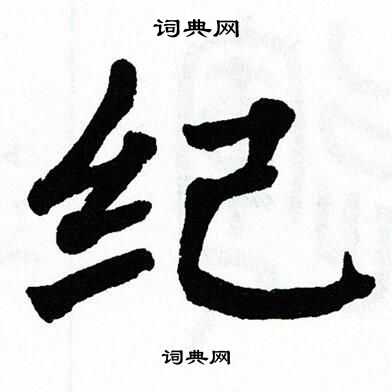 词典网
纪
词典网